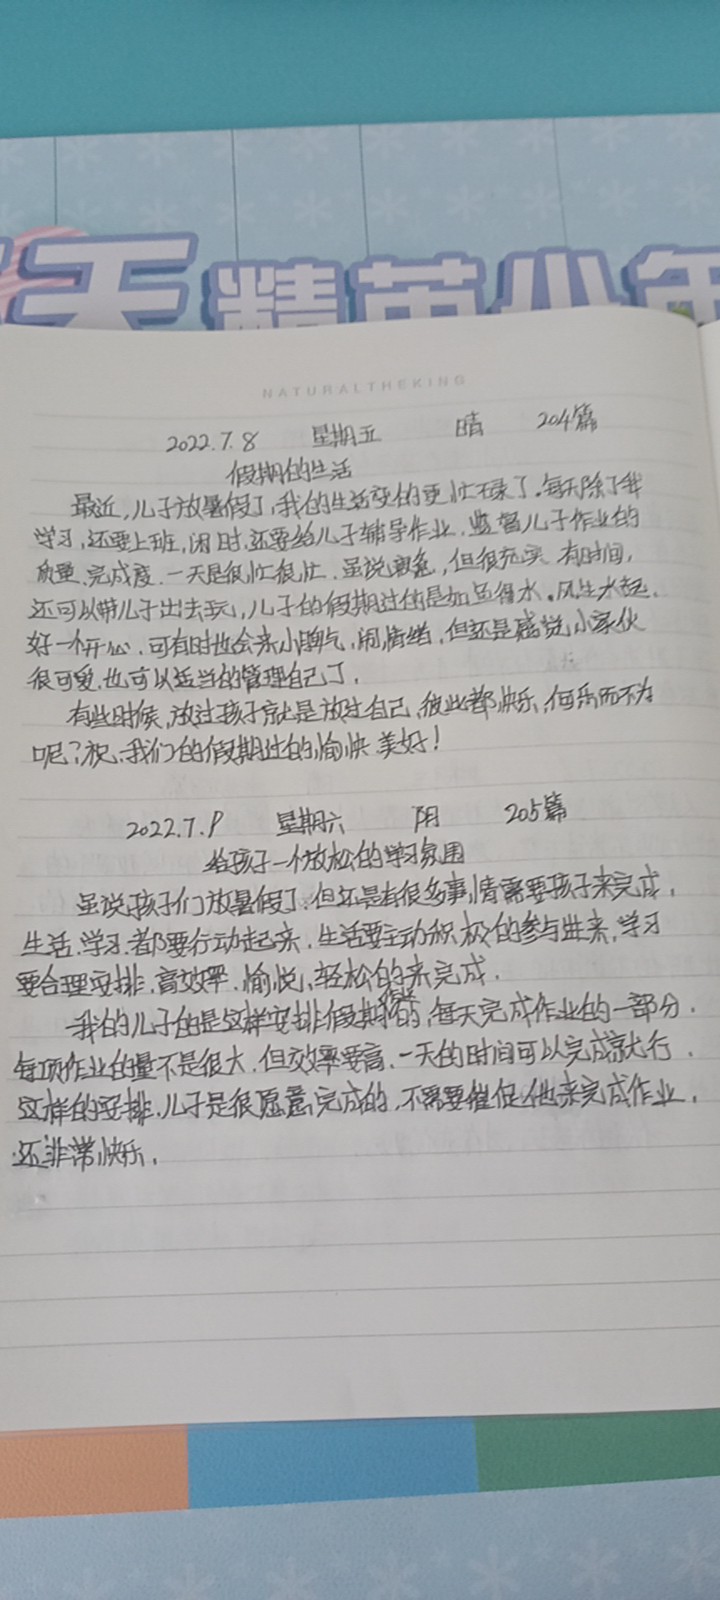 天精英少年
NATURALTHEKING
2022.7.8 星期五 晴 204篇
假期的生活
最近,儿子放暑假了,我的生活变的更忙碌了。每天除了我
学习,还要上班,闲时,还要给儿子辅导作业,监督儿子作业的
质量、完成度,一天是很忙很忙,虽说疲惫,但很充实,有时间,
还可以带儿子出去玩,儿子的假期过的是如鱼得水,风生水起,
好一个开心,可有时也会来小脾气,闹情绪,但还是感觉小家伙
很可爱,也可以适当的管理自己了。
有些时候,放过孩子就是放过自己,彼此都快乐,何乐而不为
呢?祝,我们的假期过的愉快美好!
2022.7.9 星期六 阴 205篇
给孩子一个放松的学习氛围
虽说孩子们放暑假了,但还是有很多事情需要孩子来完成,
生活、学习都要行动起来,生活要主动积极的参与进来,学习
要合理安排,高效率、愉悦、轻松的来完成。
我的儿子的是这样安排假期的,每天完成作业的一部分,
每项作业的量不是很大,但效率要高,一天的时间可以完成就行,
这样的安排,儿子是很愿意完成的,不需要催促他来完成作业,
还非常快乐。